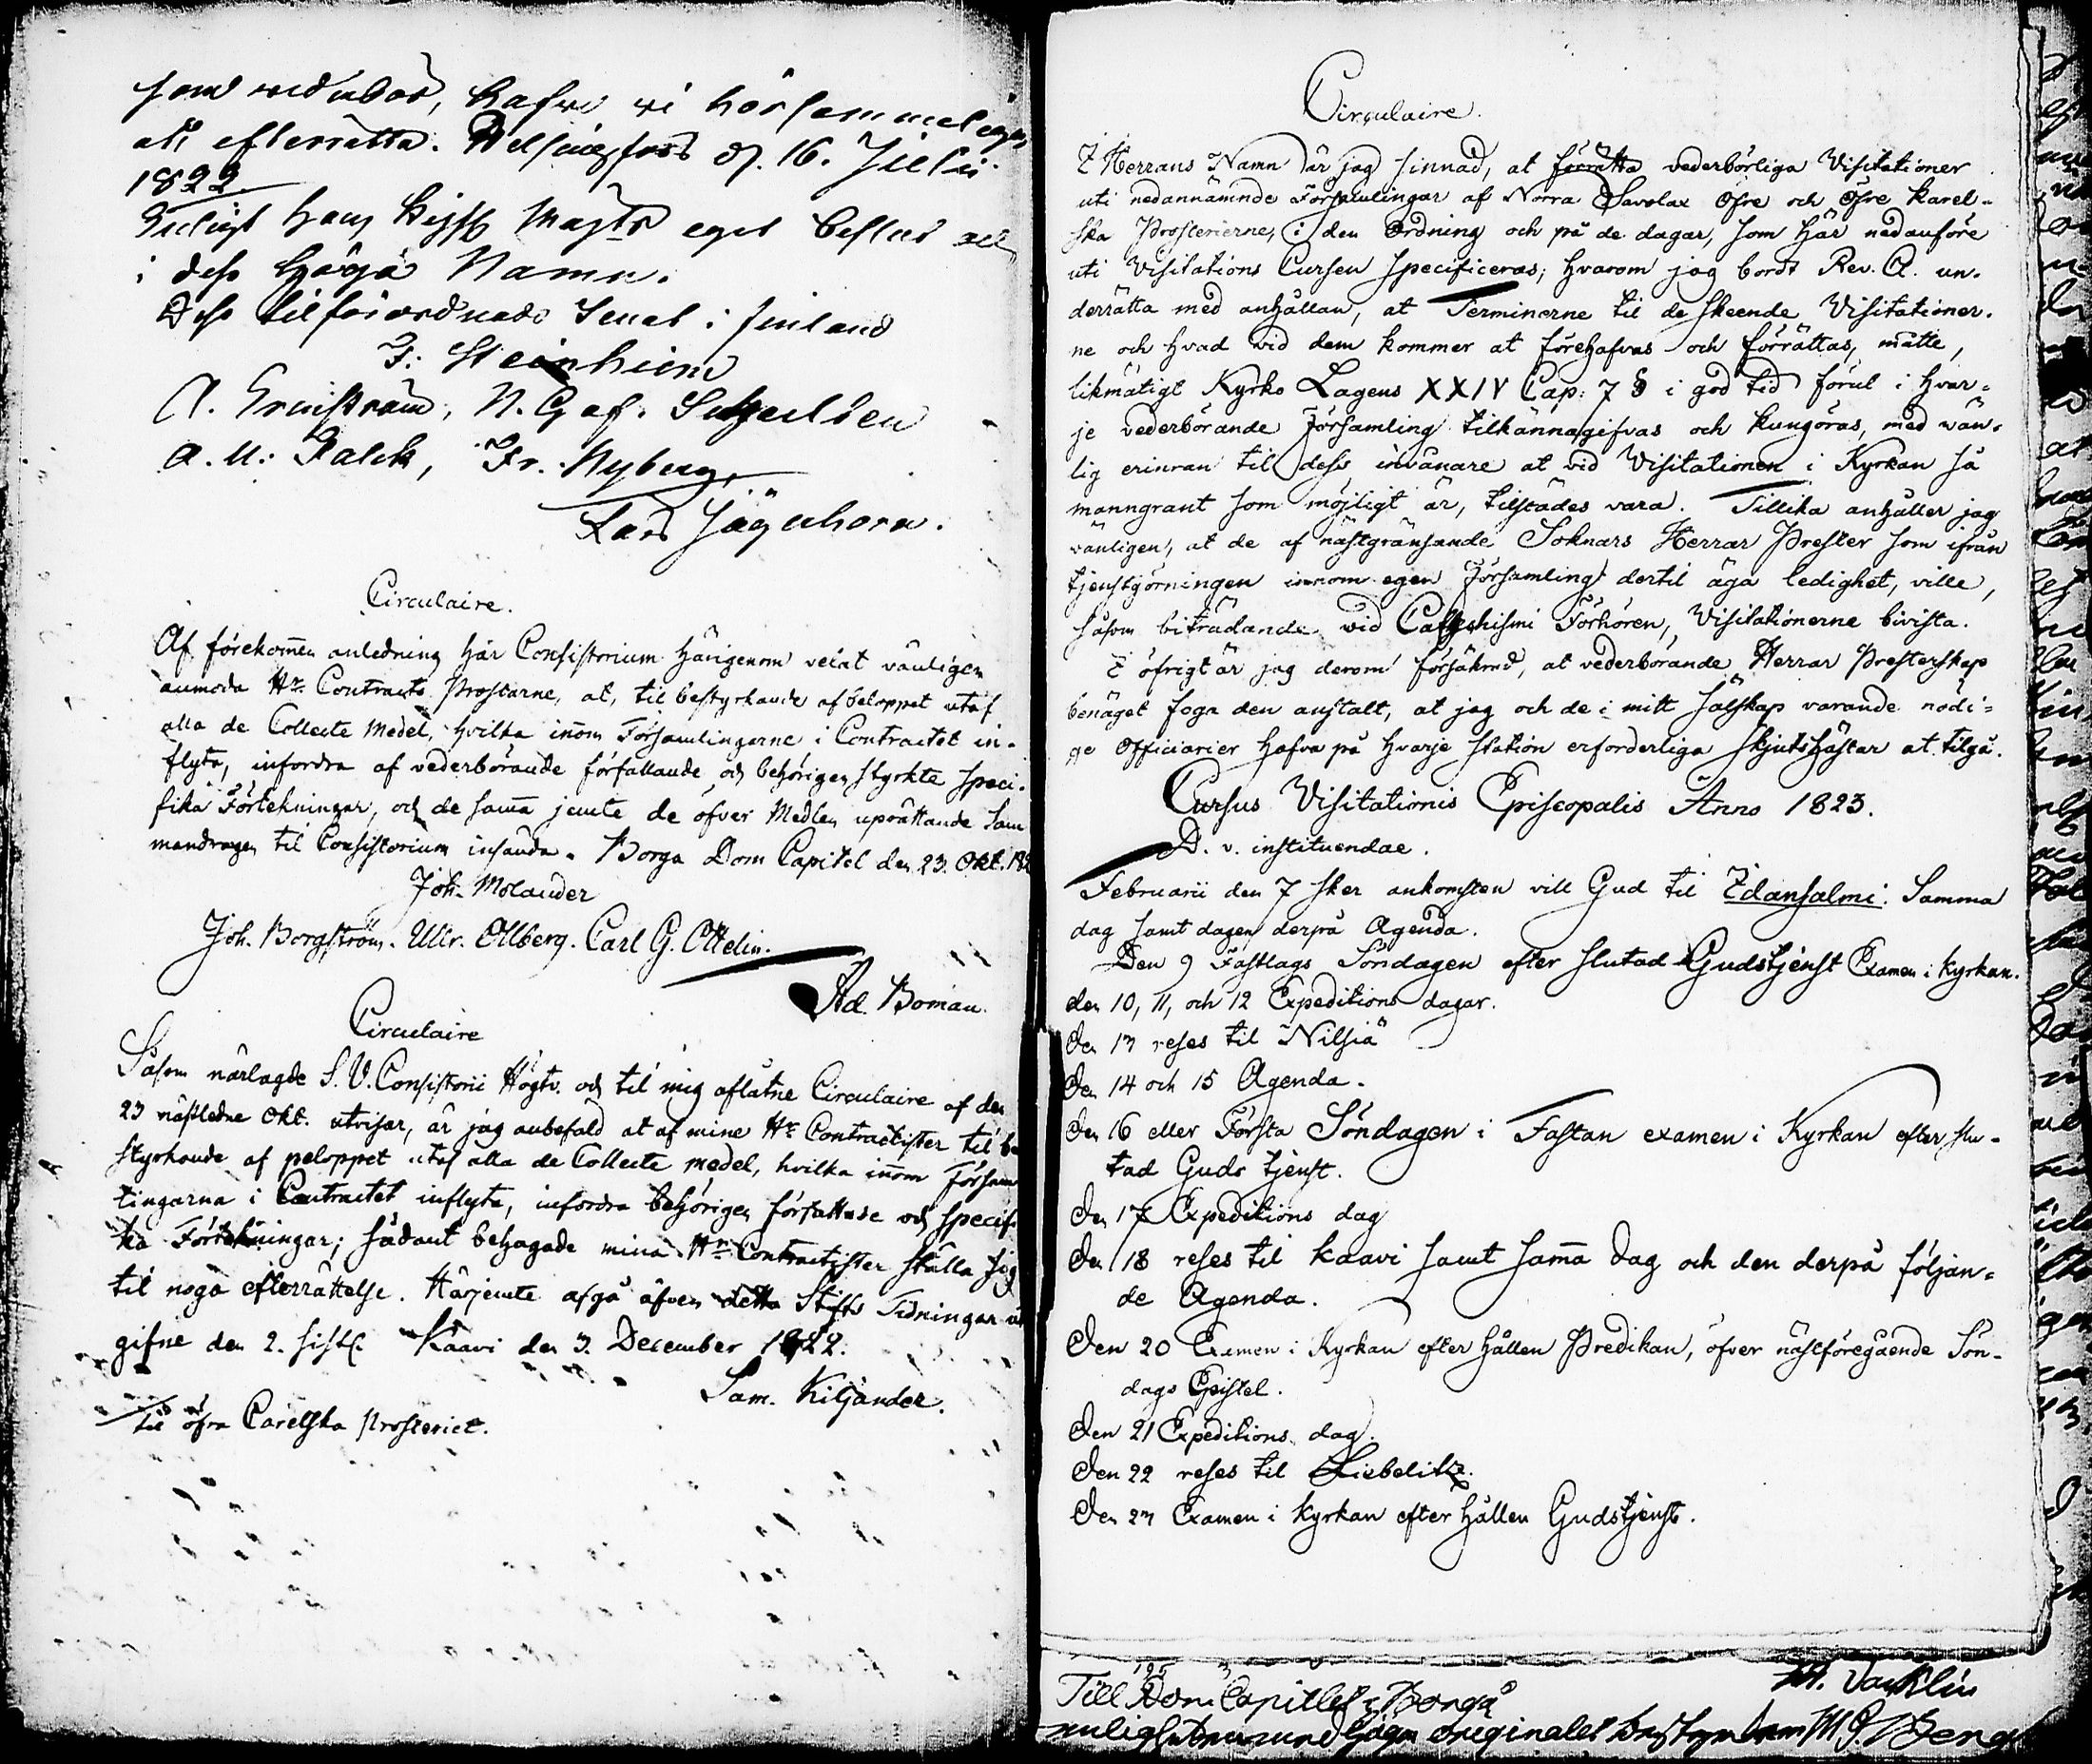 som vederbör, hafva vi hörsammeligen
att efterrätta. Helsingfors d. 16. Julii
1822
Enligt Hans Kejsl Majts eget beslut och
i dess höga Namn.
Dess tilförordnade Senat i Finland
F: Steinheim
A. Grinström, N. G. af. Schulten
A. M: Falck, Fr. Nyberg,
Lars Jägerhorn.
Circulaire.
Af förekommen anledning har Consistorium härigenom velat vänligen
anmoda Hr Contracts Prostarne, at, til bestyrkande af beloppet utaf
alla de Collecte Medel, hvilka inom Församlingarne i Contractet in-
flyta, infordra af vederbörande författande och behörigen styrkte speci-
fika Förtekningar, och de samma jemte de öfver Medlen uprättande Sam
mandragen til Consistorium insända. Borgå Dom Capitel den 23. Okt. 182
Joh. Molander
Joh. Borgström. Ulr. Ollberg. Carl G. Ottelin.
Ad. Boman.
Circulaire
Såsom närlagde S. V. Consistorii Högtv. och til mig aflåtne Circulaire af den
23 nästledne Okt. utvisar, är jag anbefald at af mine Hr Contractister til be
styrkande af peloppet utaf alla de Collecte medel, hvilka inom Församl
lingarna i Contractet inflyta, infordra behörigen författade och specifi
ka Förtekningar; sådant behagade mina Hrr Contractister ställa sig
til noga efterrättelse. Härjemte afgå äfven detta Stifts Tidningar ut
gifne den 2. sistl. Kaavi den 3. December 1822.
Sam. Kiljander.
til öfra Carelska Prosteriet.
Circulaire.
I Herrans Namn är jag sinnad, at förrätta vederbörliga Visitationer
uti nedannämnde Församlingar af Norra Savolax Öfre och Öfre Karel-
ska Prosterierne, i den Ordning och på de dagar, som här nedanföre
uti Visitations Cursen specificeras; hvarom jag bordt Rev. A. un-
derrätta med anhållan, at Terminerne til de skeende Visitationer-
ne och hvad vid dem kommer at förehafvas och förrättas, måtte,
likmätigt Kyrko Lagens XXIV Cap: 7 § i god tid förut i hvar-
je vederbörande Församling tilkännagifvas och kungöras, med vän-
lig erinran til dess invånare at vid Visitationen i Kyrkan så
manngrant som möjligt är, tilstädes vara. Tillika anhåller jag
vänligen, at de af nästgränsande Soknars Herrar Prester som ifrån
tjenstgörningen innom egen Församling dertil äga ledighet, ville,
såsom biträdande vid Catechismi Förhören, Visitationerne bivista.
I öfrigt är jag derom försäkrad, at vederbörande Herrar Presterskap
benäget foga den anstalt, at jag och de i mitt sälskap varande nödi-
ge Officiarier hafva på hvarje station erforderliga skjutshästar at tilgå.
Cursus Visitationis Episcopalis Anno 1823.
D. v. instituendae.
Februarii den 7 sker ankomsten vill Gud til Idansalmi. Samma
dag samt dagen derpå Agenda.
Den 9 Fastlags Söndagen efter slutad Gudstjenst Examen i Kyrkan.
den 10, 11, och 12 Expeditions dagar.
den 13 reses til Nilsiä
den 14 och 15 Agenda.
den 16 eller Första Söndagen i Fastan examen i Kyrkan efter slu-
tad Guds tjenst.
den 17 Expeditions dag
den 18 reses til Kaavi samt samma dag och den derpå följan-
de Agenda.
den 20 Examen i Kyrkan efter hållen Predikan, öfver nästföregående Sön-
dags Epistel.
den 21 Expeditions dag.
den 22 reses til Liebelitz.
den 23 Examen i Kyrkan efter hållen Gudstjenst.
Till Dom Capitlet i Borgå
originalet